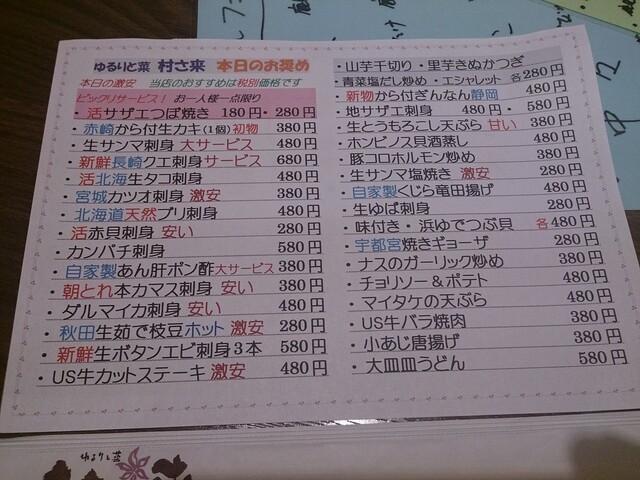 ゆるりと菜 村さ来 本日のお奨め
本日の激安 当店のおすすめは税別価格です
ビックリサービス! お一人様一点限り
・活サザエつぼ焼き 180円・280円
・赤崎から付生カキ(1個)初物 380円
・生サンマ刺身 大サービス 480円
・新鮮長崎クエ刺身サービス 680円
・活北海生タコ刺身 480円
・宮城カツオ刺身 激安 380円
・北海道天然ブリ刺身 480円
・活赤貝刺身 安い 480円
・カンパチ刺身 580円
・自家製あん肝ポン酢大サービス 380円
・朝とれ本カマス刺身 安い 380円
・ダルマイカ刺身 安い 480円
・秋田生茹で枝豆ホット 激安 280円
・新鮮生ボタンエビ刺身3本 580円
・US牛カットステーキ 激安 480円
・山芋千切り・里芋きぬかつぎ
・青菜塩だし炒め・エシャレット 各280円
・新物から付ぎんなん静岡 480円
・地サザエ刺身 480円・580円
・生とうもろこし天ぷら 甘い 380円
・ホンビノス貝酒蒸し 480円
・豚コロホルモン炒め 380円
・生サンマ塩焼き 激安 280円
・自家製くじら竜田揚げ 480円
・生ゆば刺身 280円
・味付き・浜ゆでつぶ貝 各480円
・宇都宮焼きギョーザ 280円
・ナスのガーリック炒め 380円
・チョリソー&ポテト 480円
・マイタケの天ぷら 480円
・US牛バラ焼肉 380円
・小あじ唐揚げ 380円
・大皿皿うどん 580円
ゆるりと菜